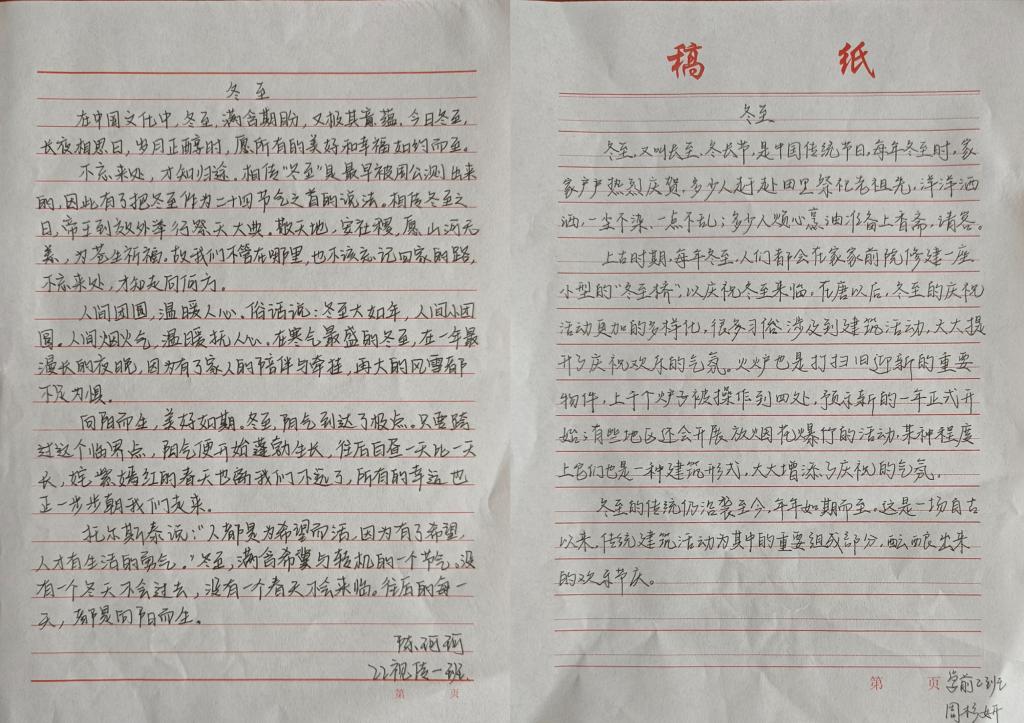 冬至
在中国文化中,冬至,满含期盼,又极其意蕴。今日冬至,
长夜相思日,岁月正醇时,愿所有的美好和幸福如约而至。
不忘来处,才知归途。相传"冬至"是最早被周公测出来
的,因此有了把冬至作为二十四节气之首的说法。相传冬至之
日,帝王到郊外举行祭天大典。敬天地,安社稷,愿山河无
恙,为苍生祈福。故我们不管在哪里,也不该忘记回家的路,
不忘来处,才知去向何方。
人间团圆,温暖人心。俗话说:冬至大如年,人间小团
圆。人间烟火气,温暖抚人心。在寒气最盛的冬至,在一年最
漫长的夜晚,因为有了家人的陪伴与牵挂,再大的风雪都
不足为惧。
向阳而生,美好如期。冬至,阳气到达了极点。只要跨
过这个临界点,阳气便开始蓬勃生长,往后白昼一天比一天
长,姹紫嫣红的春天也离我们不远了,所有的幸运也
正一步步朝我们走来。
托尔斯泰说:"人都是为希望而活,因为有了希望,
人才有生活的勇气。"冬至,满含希冀与转机的一个节气。没
有一个冬天不会过去,没有一个春天不会来临。往后的每一
天,都是向阳而生。
陈珂珂
22视传一班
第 页
稿 纸
冬至
冬至,又叫长至、冬长节,是中国传统节日,每年冬至时,家
家户户热烈庆贺,多少人赶赴田里祭祀老祖先,洋洋洒
洒,一尘不染、一点不乱;多少人烦心熏油准备上香斋,请客。
上古时期,每年冬至,人们都会在家家前院修建一座
小型的"冬至桥",以庆祝冬至来临,在唐以后,冬至的庆祝
活动更加的多样化,很多习俗涉及到建筑活动,大大提
升了庆祝欢乐的气氛。火炉也是打扫旧迎新的重要
物件,上千个炉子被操作到四处,预示新的一年正式开
始;有些地区还会开展放烟花爆竹的活动,某种程度
上它们也是一种建筑形式,大大增添了庆祝的气氛。
冬至的传统仍沿袭至今,年年如期而至。这是一场自古
以来,传统建筑活动为其中的重要组成部分,酝而出来
的欢乐节庆。
第 页
学前2班
周杉妍